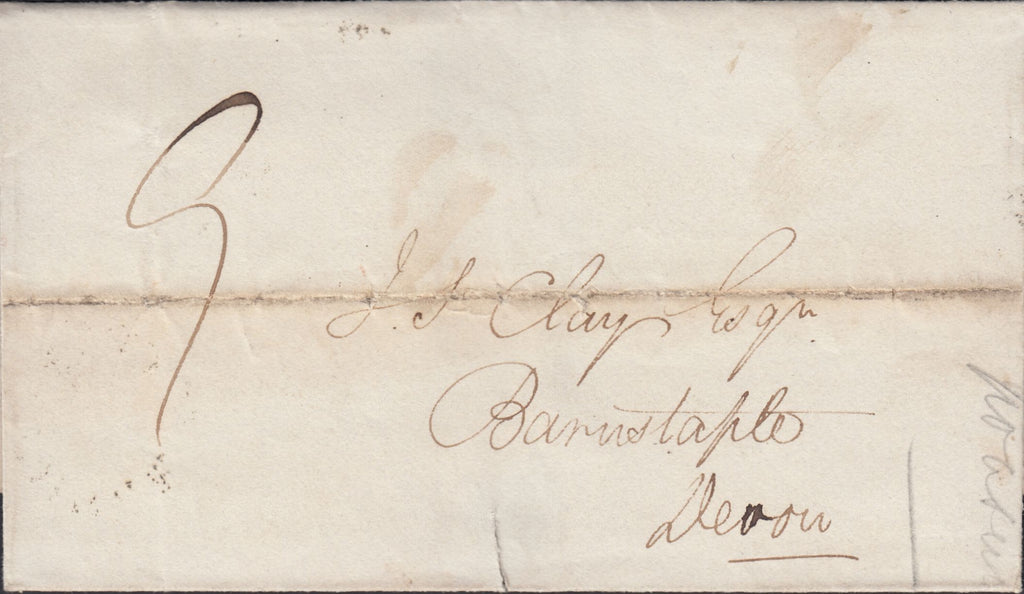 9
J. S Clay Esqr
Barnstaple
Devon